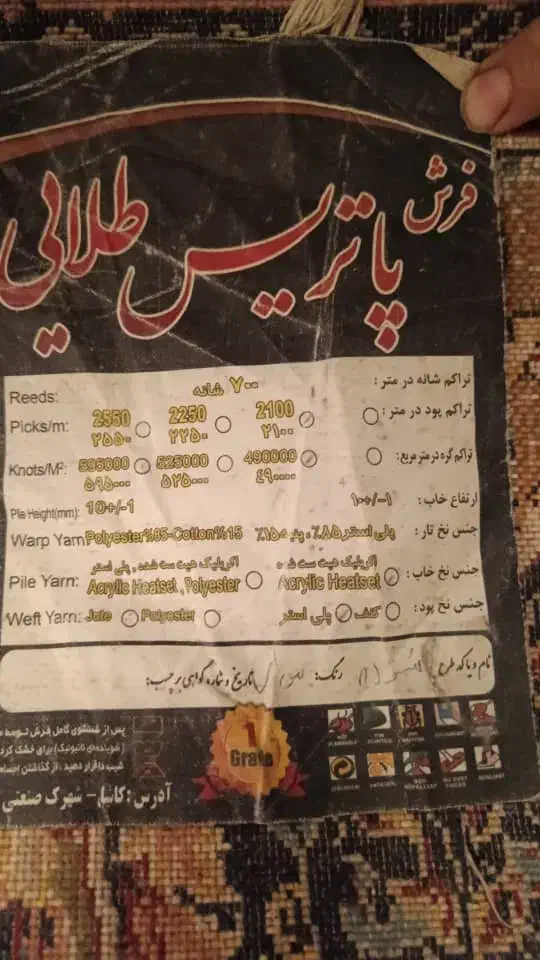 فرش
پاتریس طلایی
Reeds: ۷۰۰ شانه تراکم شانه در متر :
Picks/m: 2550 2250 2100 تراکم پود در متر :
۲۵۵۰ ۲۲۵۰ ۲۱۰۰
Knots/M²: 595000 525000 490000 تراکم گره در متر مربع:
۵۹۵۰۰۰ ۵۲۵۰۰۰ ۴۹۰۰۰۰
Pile Height(mm): 10+/-1 ۱۰+/-۱ ارتفاع خاب :
Warp Yarn Polyester%85-Cotton%15 پلی استر ۸۵٪، پنبه ۱۵٪ جنس نخ تار :
اکریلیک هیت ست شده ، پلی استر اکریلیک هیت ست شده جنس نخ خاب :
Pile Yarn: Acrylic Heatset , Polyester Acrylic Heatset
Weft Yarn: Jute Polyester کنف پلی استر جنس نخ پود :
نام و یا کد طرح رنگ: تاریخ و شماره گواهی برچسب:
پس از شستشوی کامل فرش توسط
برای خشک کرد
شیب دار قرار دهید ، از گذاشتن اجسام
آدرس : کاشان - شهرک صنعتی
1
Grade